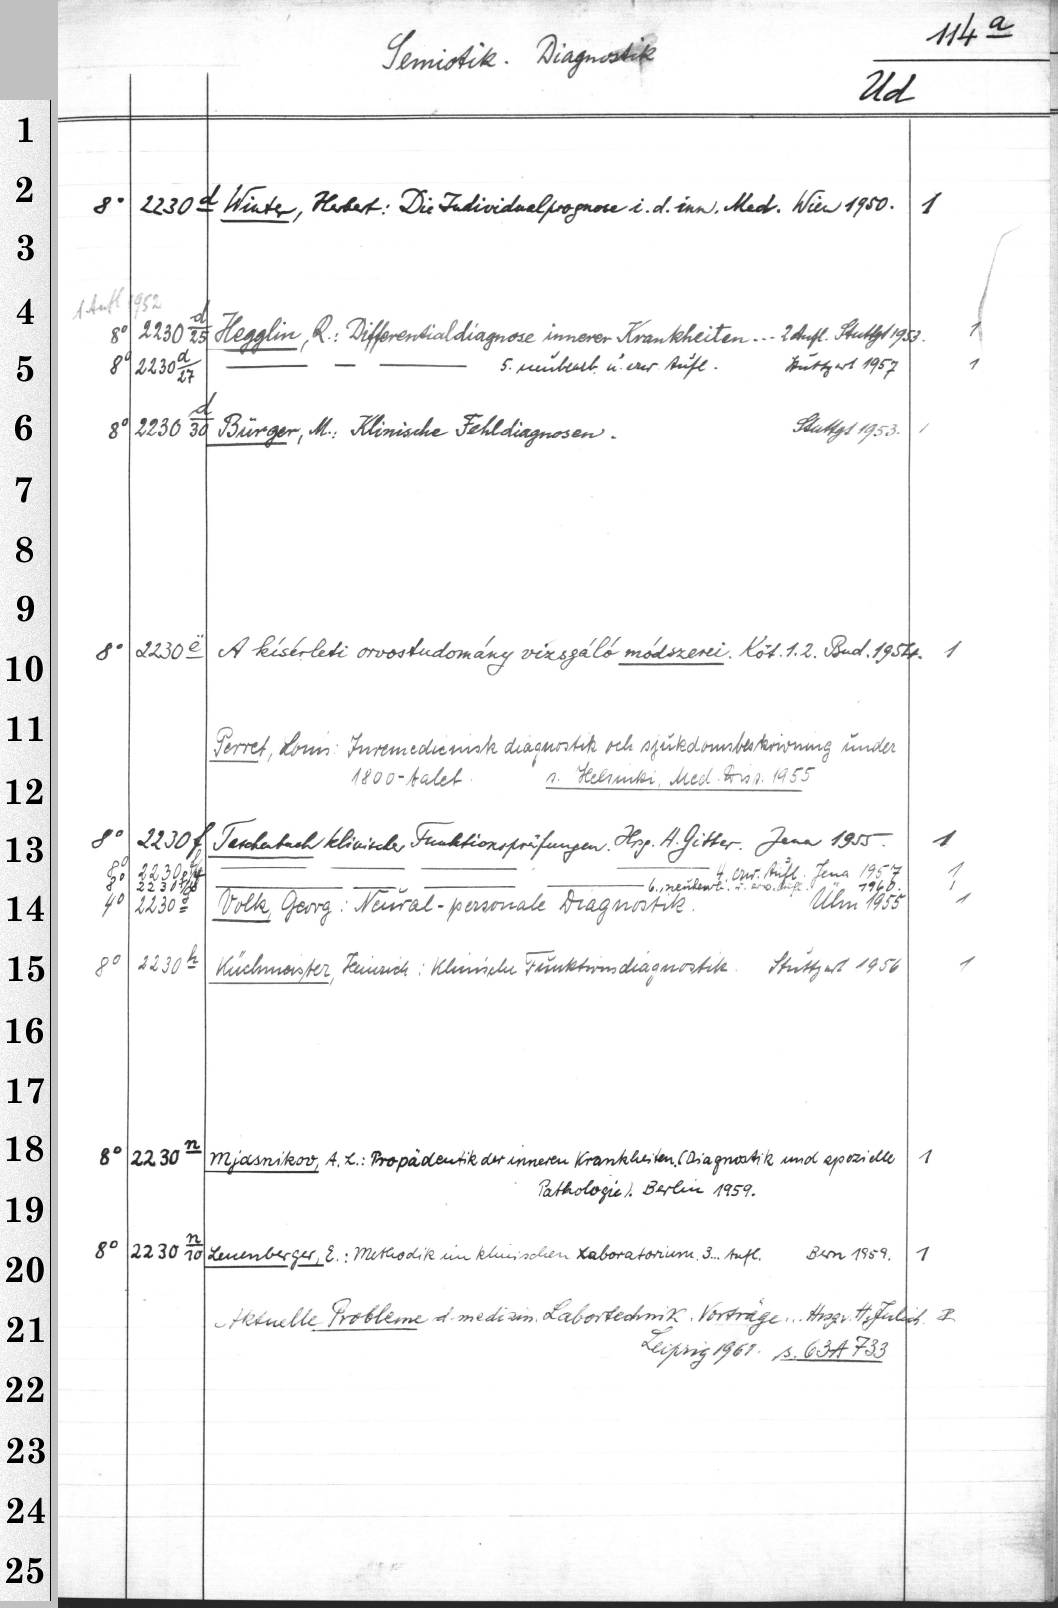 114 a
Semiotik. Diagnostik
Ud
1
2
8° 2230 d Winter, Herbert: Die Individualprognose i. d. inn. Med. Wien 1950. 1
3
1 Aufl 1952
4
8° 2230 d/25 Hegglin, R.: Differentialdiagnose innerer Krankheiten... 2 Aufl. Stuttgt 1953. 1
5
8° 2230 d/27 — — — 5. neubearb. u. erw. Aufl. Stuttgart 1957 1
6
8° 2230 d/30 Bürger, M.: Klinische Fehldiagnosen. Stuttgt 1953. 1
7
8
9
10
8° 2230 e A kísérleti orvostudomány vizsgáló módszerei. Köt. 1.2. Bud. 1954. 1
11
Perret, Louis: Inremedicinsk diagnostik och sjukdomsbeskrivning under
12
1800-talet. s. Helsinki, Med. Diss. 1955
13
8° 2230 f Taschenbuch klinischer Funktionsprüfungen. Hrsg. A. Gitter. Jena 1955. 1
8° 2230 — — — — 4. erw. Aufl. Jena 1957 1
8° 2230 — — — — 6., neubearb. u. erw. Aufl. 1960. 1
14
4° 2230 g Volk, Georg: Neural-personale Diagnostik. Ulm 1955 1
15
8° 2230 h Küchmeister, Heinrich: Klinische Funktionsdiagnostik. Stuttgart 1956 1
16
17
18
8° 2230 n Mjasnikov, A. L.: Propädeutik der inneren Krankheiten. (Diagnostik und spezielle 1
19
Pathologie). Berlin 1959.
20
8° 2230 n/10 Leuenberger, E.: Methodik im klinischen Laboratorium. 3... Aufl. Bern 1959. 1
21
Aktuelle Probleme d. medizin. Labortechnik. Vorträge... Hrsg. v. H.
Leipzig 1961. s. 63A733
22
23
24
25